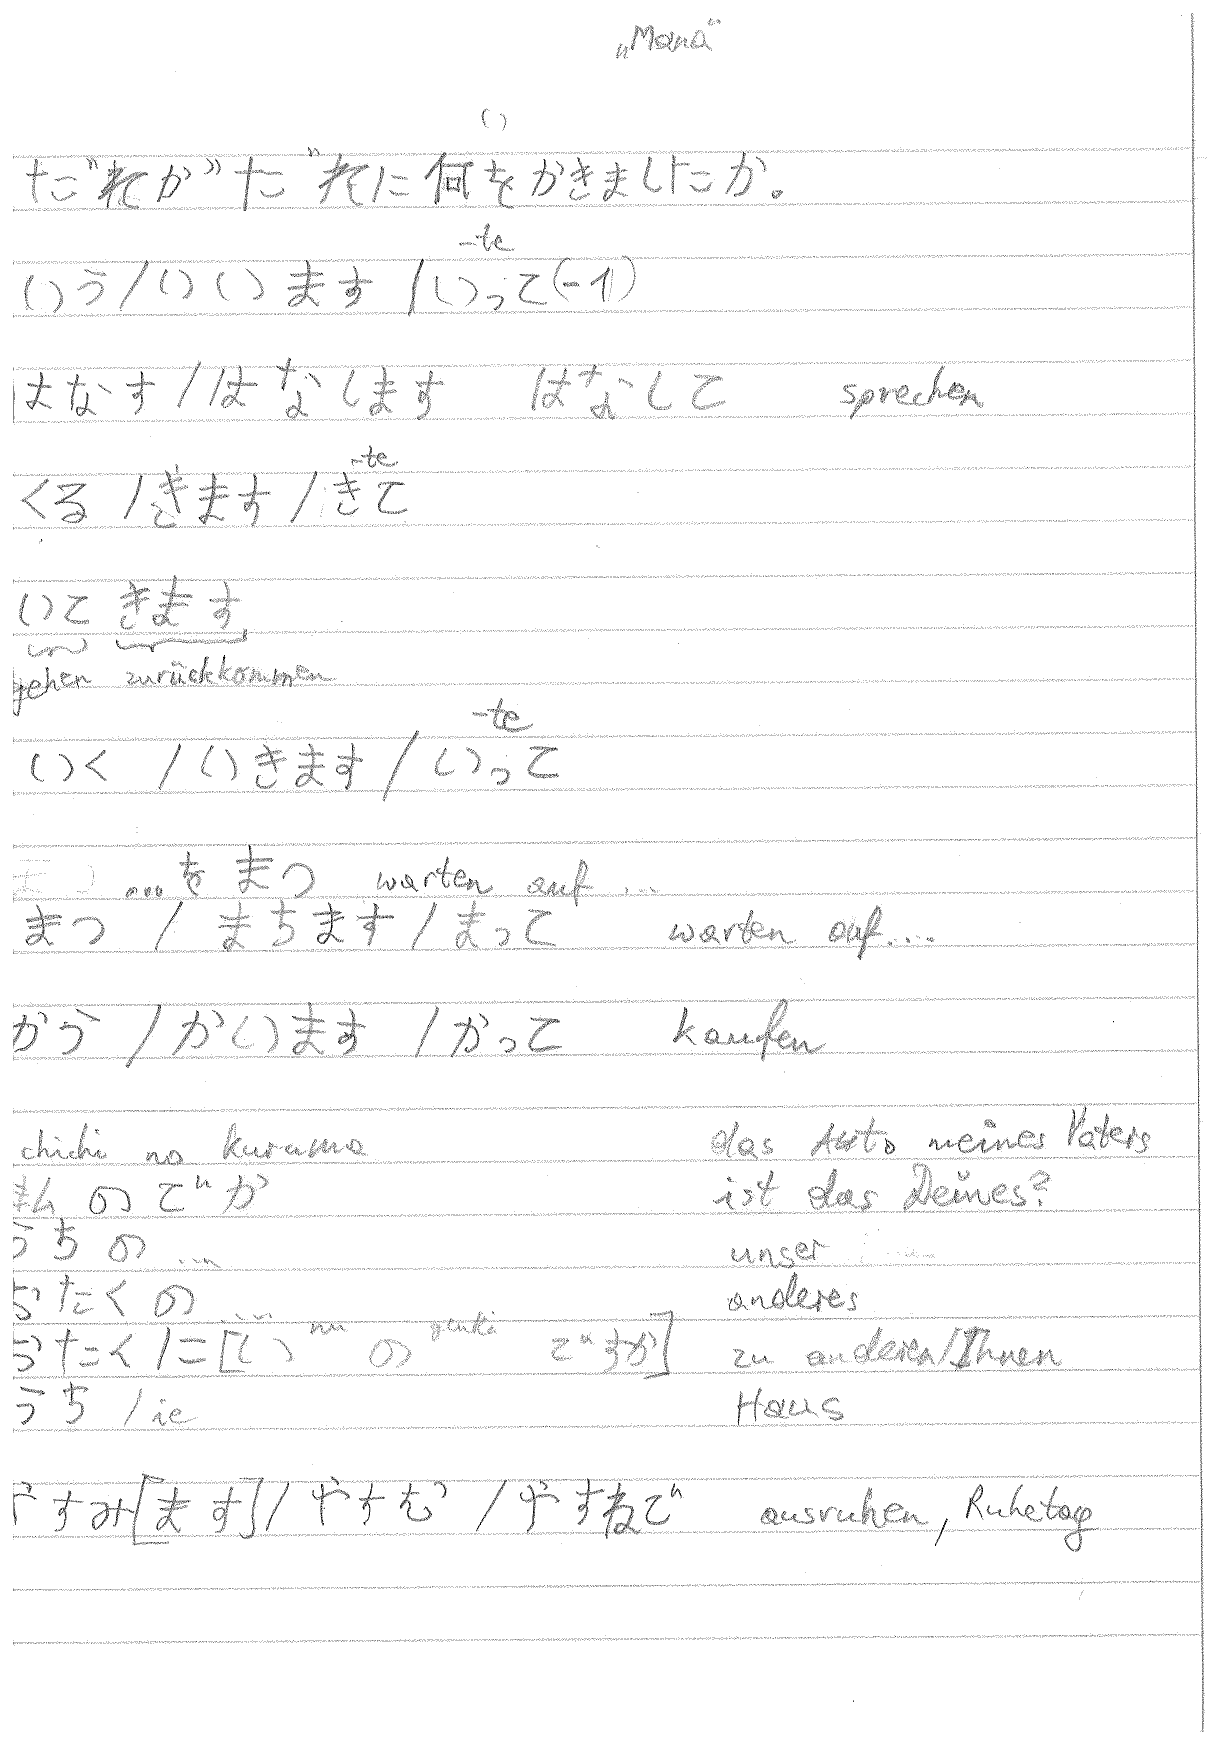 „Mama“
だれかだれに何をかきましたか。
-te
いう/いいます/いって(-1)
はなす/はなします はなして sprechen
-te
くる/きます/きて
いて きます
gehen zurückkommen
-te
いく/いきます/いって
まつ ...をまつ warten auf ...
まつ / まちます / まって warten auf....
かう / かいます / かって kaufen
chichi no kuruma das Auto meines Vaters
のでか ist das Deines?
うちの ... unser
おたくの ... anderes
おたくに[い の genki ですか] zu anderen/Ihnen
うち / ie Haus
やすみ[ます]/やすむ/やすねで ausruhen, Ruhetag